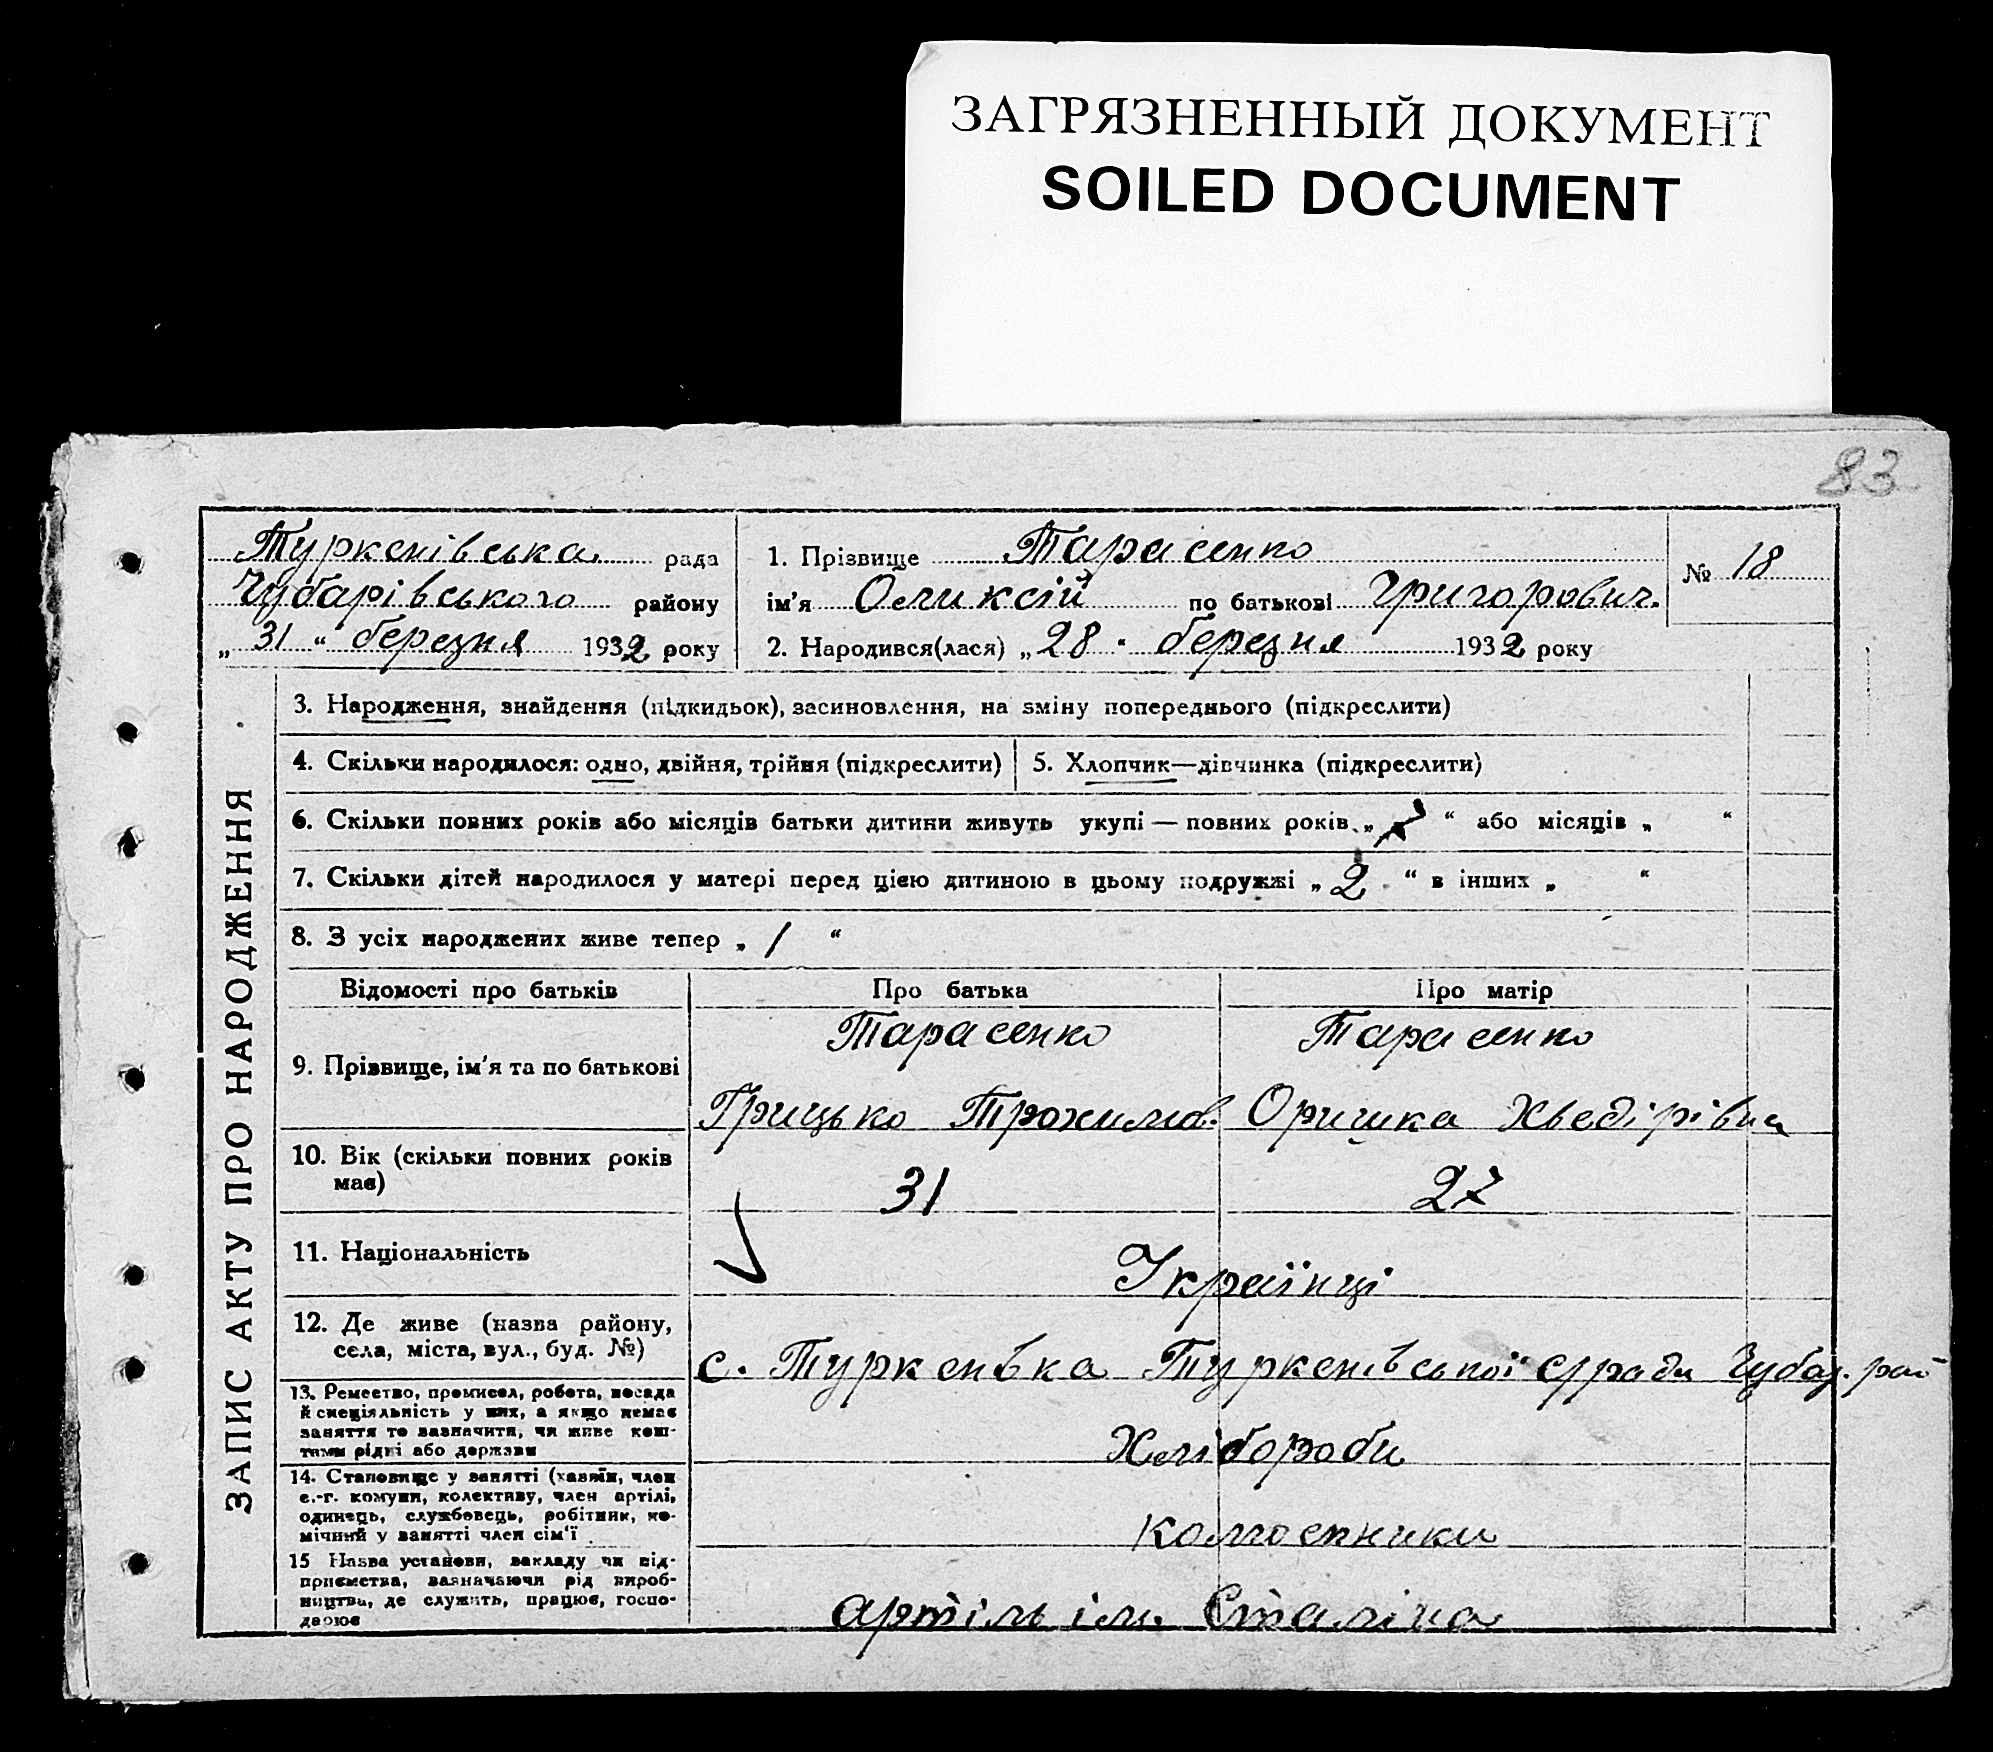 ЗАГРЯЗНЕННЫЙ ДОКУМЕНТ
SOILED DOCUMENT
83
Туркенівська рада
Чубарівського району
„ 31 “ березня 1932 року
1. Прізвище Тарасенко
ім'я Оликсій по батькові Григорович.
2. Народився(лася) „ 28 “ березня 1932 року
№ 18
ЗАПИС АКТУ ПРО НАРОДЖЕННЯ
3. Народження, знайдення (підкидьок), засиновлення, на зміну попереднього (підкреслити)
4. Скільки народилося: одно, двійня, трійня (підкреслити)
5. Хлопчик—дівчинка (підкреслити)
6. Скільки повних років або місяців батьки дитини живуть укупі — повних років „ “ або місяців „ “
7. Скільки дітей народилося у матері перед цією дитиною в цьому подружжі „ 2 “ в інших „ “
8. З усіх народжених живе тепер „ 1 “
Відомості про батьків
Про батька
Про матір
9. Прізвище, ім'я та по батькові
Тарасенко
Грицько Трохимов.
Тарасенко
Оришка Хведірівна
10. Вік (скільки повних років
має)
31
27
11. Національність
Українці
12. Де живе (назва району,
села, міста, вул., буд. №)
с. Туркенівка Туркенівської с/ради Чубар. рай
13. Ремество, промисел, робота, посада
й спеціяльність у них, а якщо немає
заняття то зазначити, чи живе кош-
тами рідні або держави
Хлібороби
14. Становище у занятті (хазяїн, член
с.-г. комуни, колективу, член артілі,
одинець, службовець, робітник, по-
мічний у занятті член сім'ї
колгоспники
15 Назва установи, закладу чи під-
приємства, зазначаючи рід вироб-
ництва, де служить, працює, госпо-
дарює
артіль ім. Сталіна